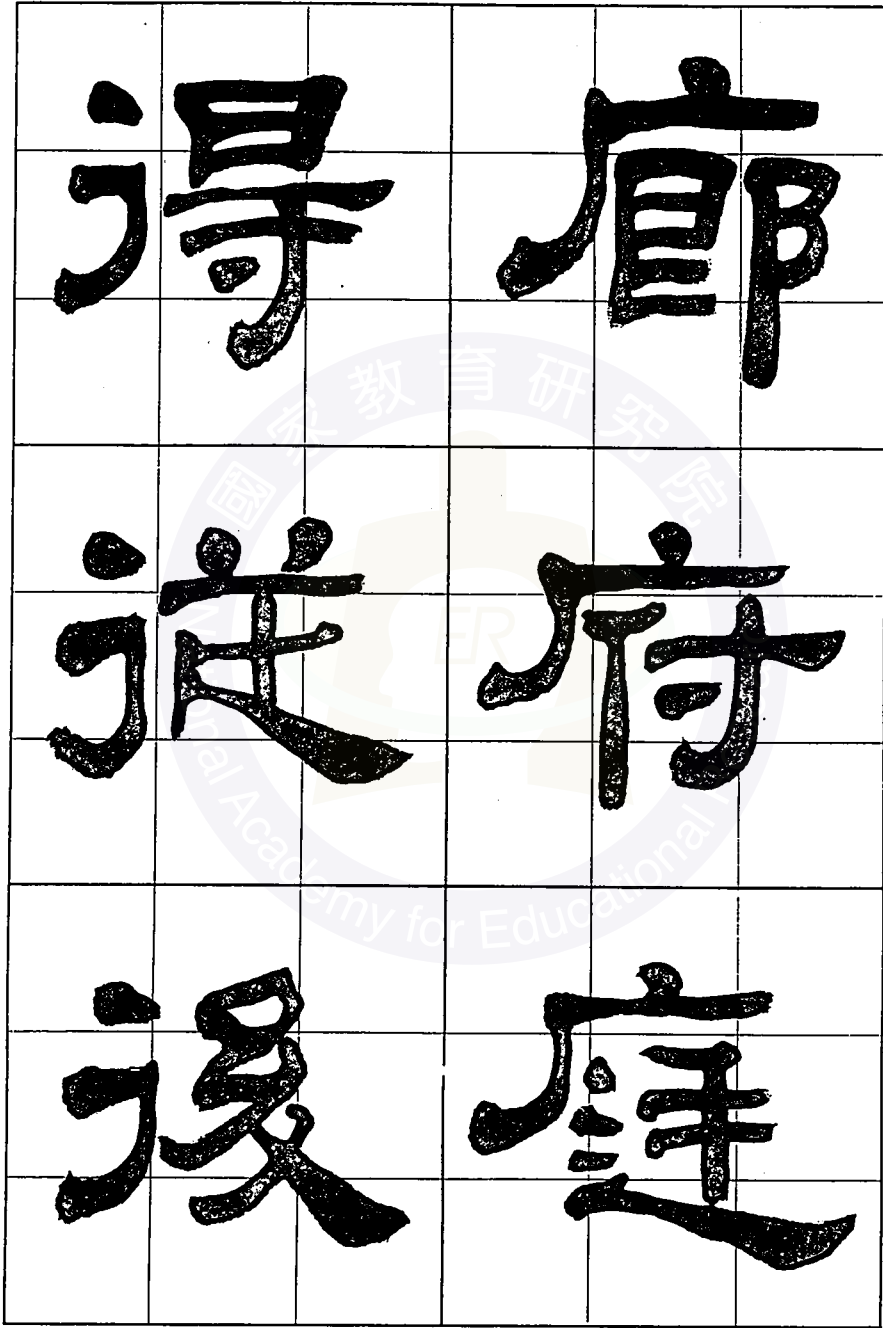 廊府庭
得從後
國家教育研究院
National Academy for Educational
ER